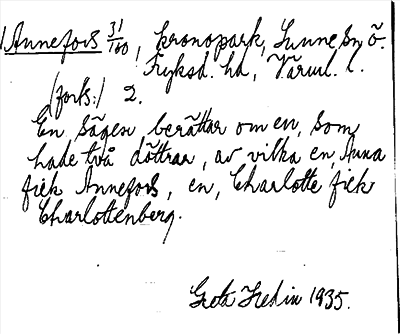 Annefors 31/160, kronopark, Sunne sn, ö.
Fryksd. hd, Värml. l.
(forts.) 2.
En sägen berättar om en, som
hade två döttrar, av vilka en, Anna
fick Annefors, en, Charlotte fick
Charlottenberg.
Greta Hedin 1935.